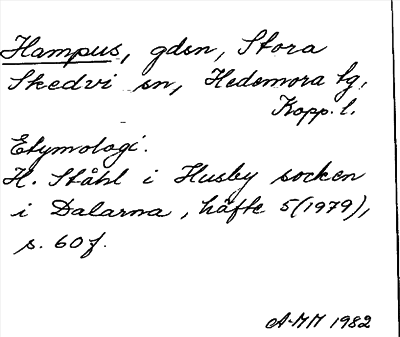 Hampus, gdsn, Stora
Skedvi sn, Hedemora tg,
Kopp. l.
Etymologi.
H. Ståhl i Husby socken
i Dalarna, häfte 5(1979),
s. 60f.
A-MM 1982